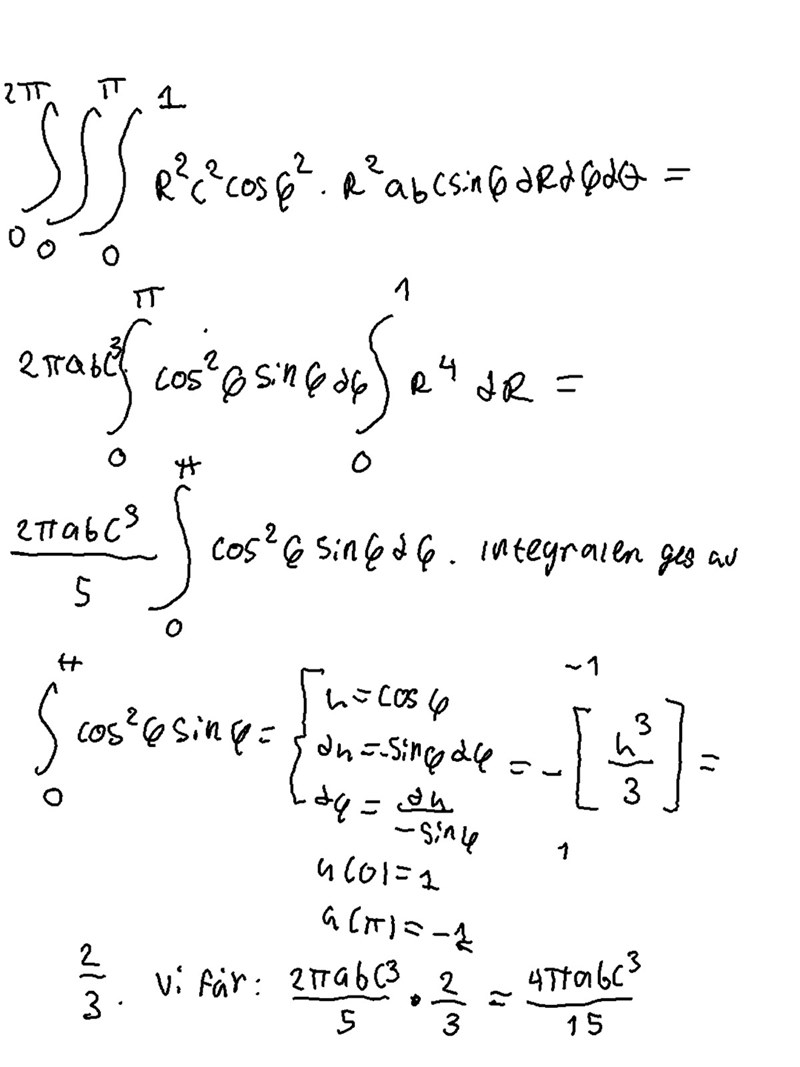 2π π 1
∫∫∫ R²c²cosφ² · R²abcsinφ dRdφdθ =
0 0 0
π 1
2πabc³ ∫ cos²φ sinφ dφ ∫ R⁴ dR =
0 0
π
2πabc³/5 ∫ cos²φ sinφ dφ. integralen ges av
0
π -1
∫ cos²φ sinφ = { u = cosφ
du = -sinφ dφ = - [u³/3] =
0 dφ = du/-sinφ 1
u(0) = 1
u(π) = -1
2/3. Vi får: 2πabc³/5 · 2/3 = 4πabc³/15